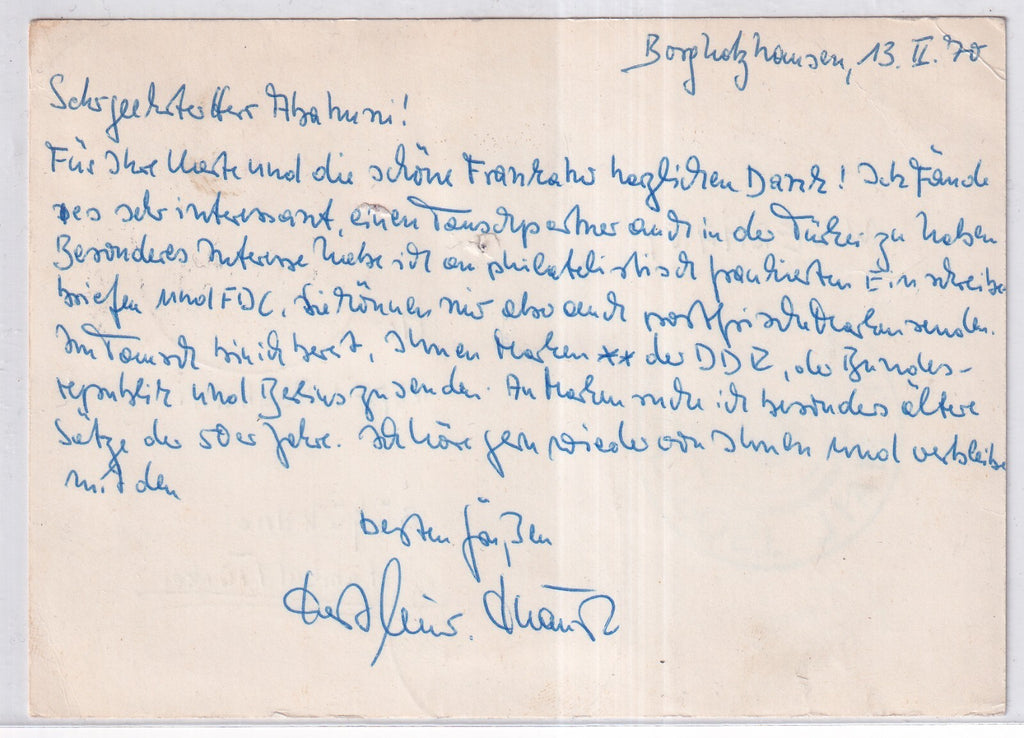 Borgholzhausen, 13. II. 70
Sehr geehrter Herr
Für Ihre Karte und die schöne Frankatur herzlichen Dank! Ich fände
es sehr interessant, einen Tauschpartner auch in der Türkei zu haben
Besonderes Interesse habe ich an philatelistisch frankierten Einschreibe
briefen und FDC. Sie können mir aber auch postfrische Marken senden.
Im Tausch bin ich bereit, Ihnen Marken ** der DDR, der Bundes-
republik und Berlins zu senden. An Marken suche ich besonders ältere
Sätze der 50er Jahre. Ich höre gern wieder von Ihnen und verbleibe
mit den
besten Grüßen